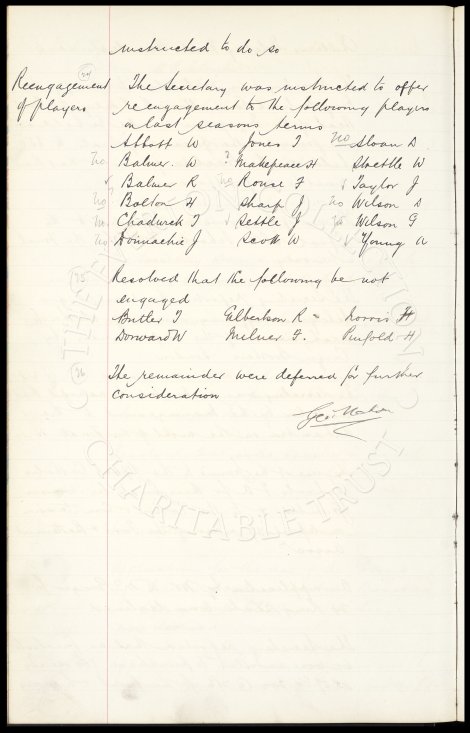 instructed to do so
74
Reengagement of players
The Secretary was instructed to offer
reengagement to the following players
on last seasons terms
Abbott W Jones T no Sloan D
no Balmer. W ? Makepeace H Stoettle W
Balmer R no Rouse F Taylor J
no? Bolton H Sharp J no Wilson D
Chadwick T Settle J Wilson G
no Donnachie J Scott W Young A
75
Resolved that the following be not
engaged
Butler T Gilbertson R Norris H
Dorward W Milner F. Pinfold H
76
The remainder were deferred for further
consideration
Geo. Mahon
THE EVERTON COLLECTION
CHARITABLE TRUST